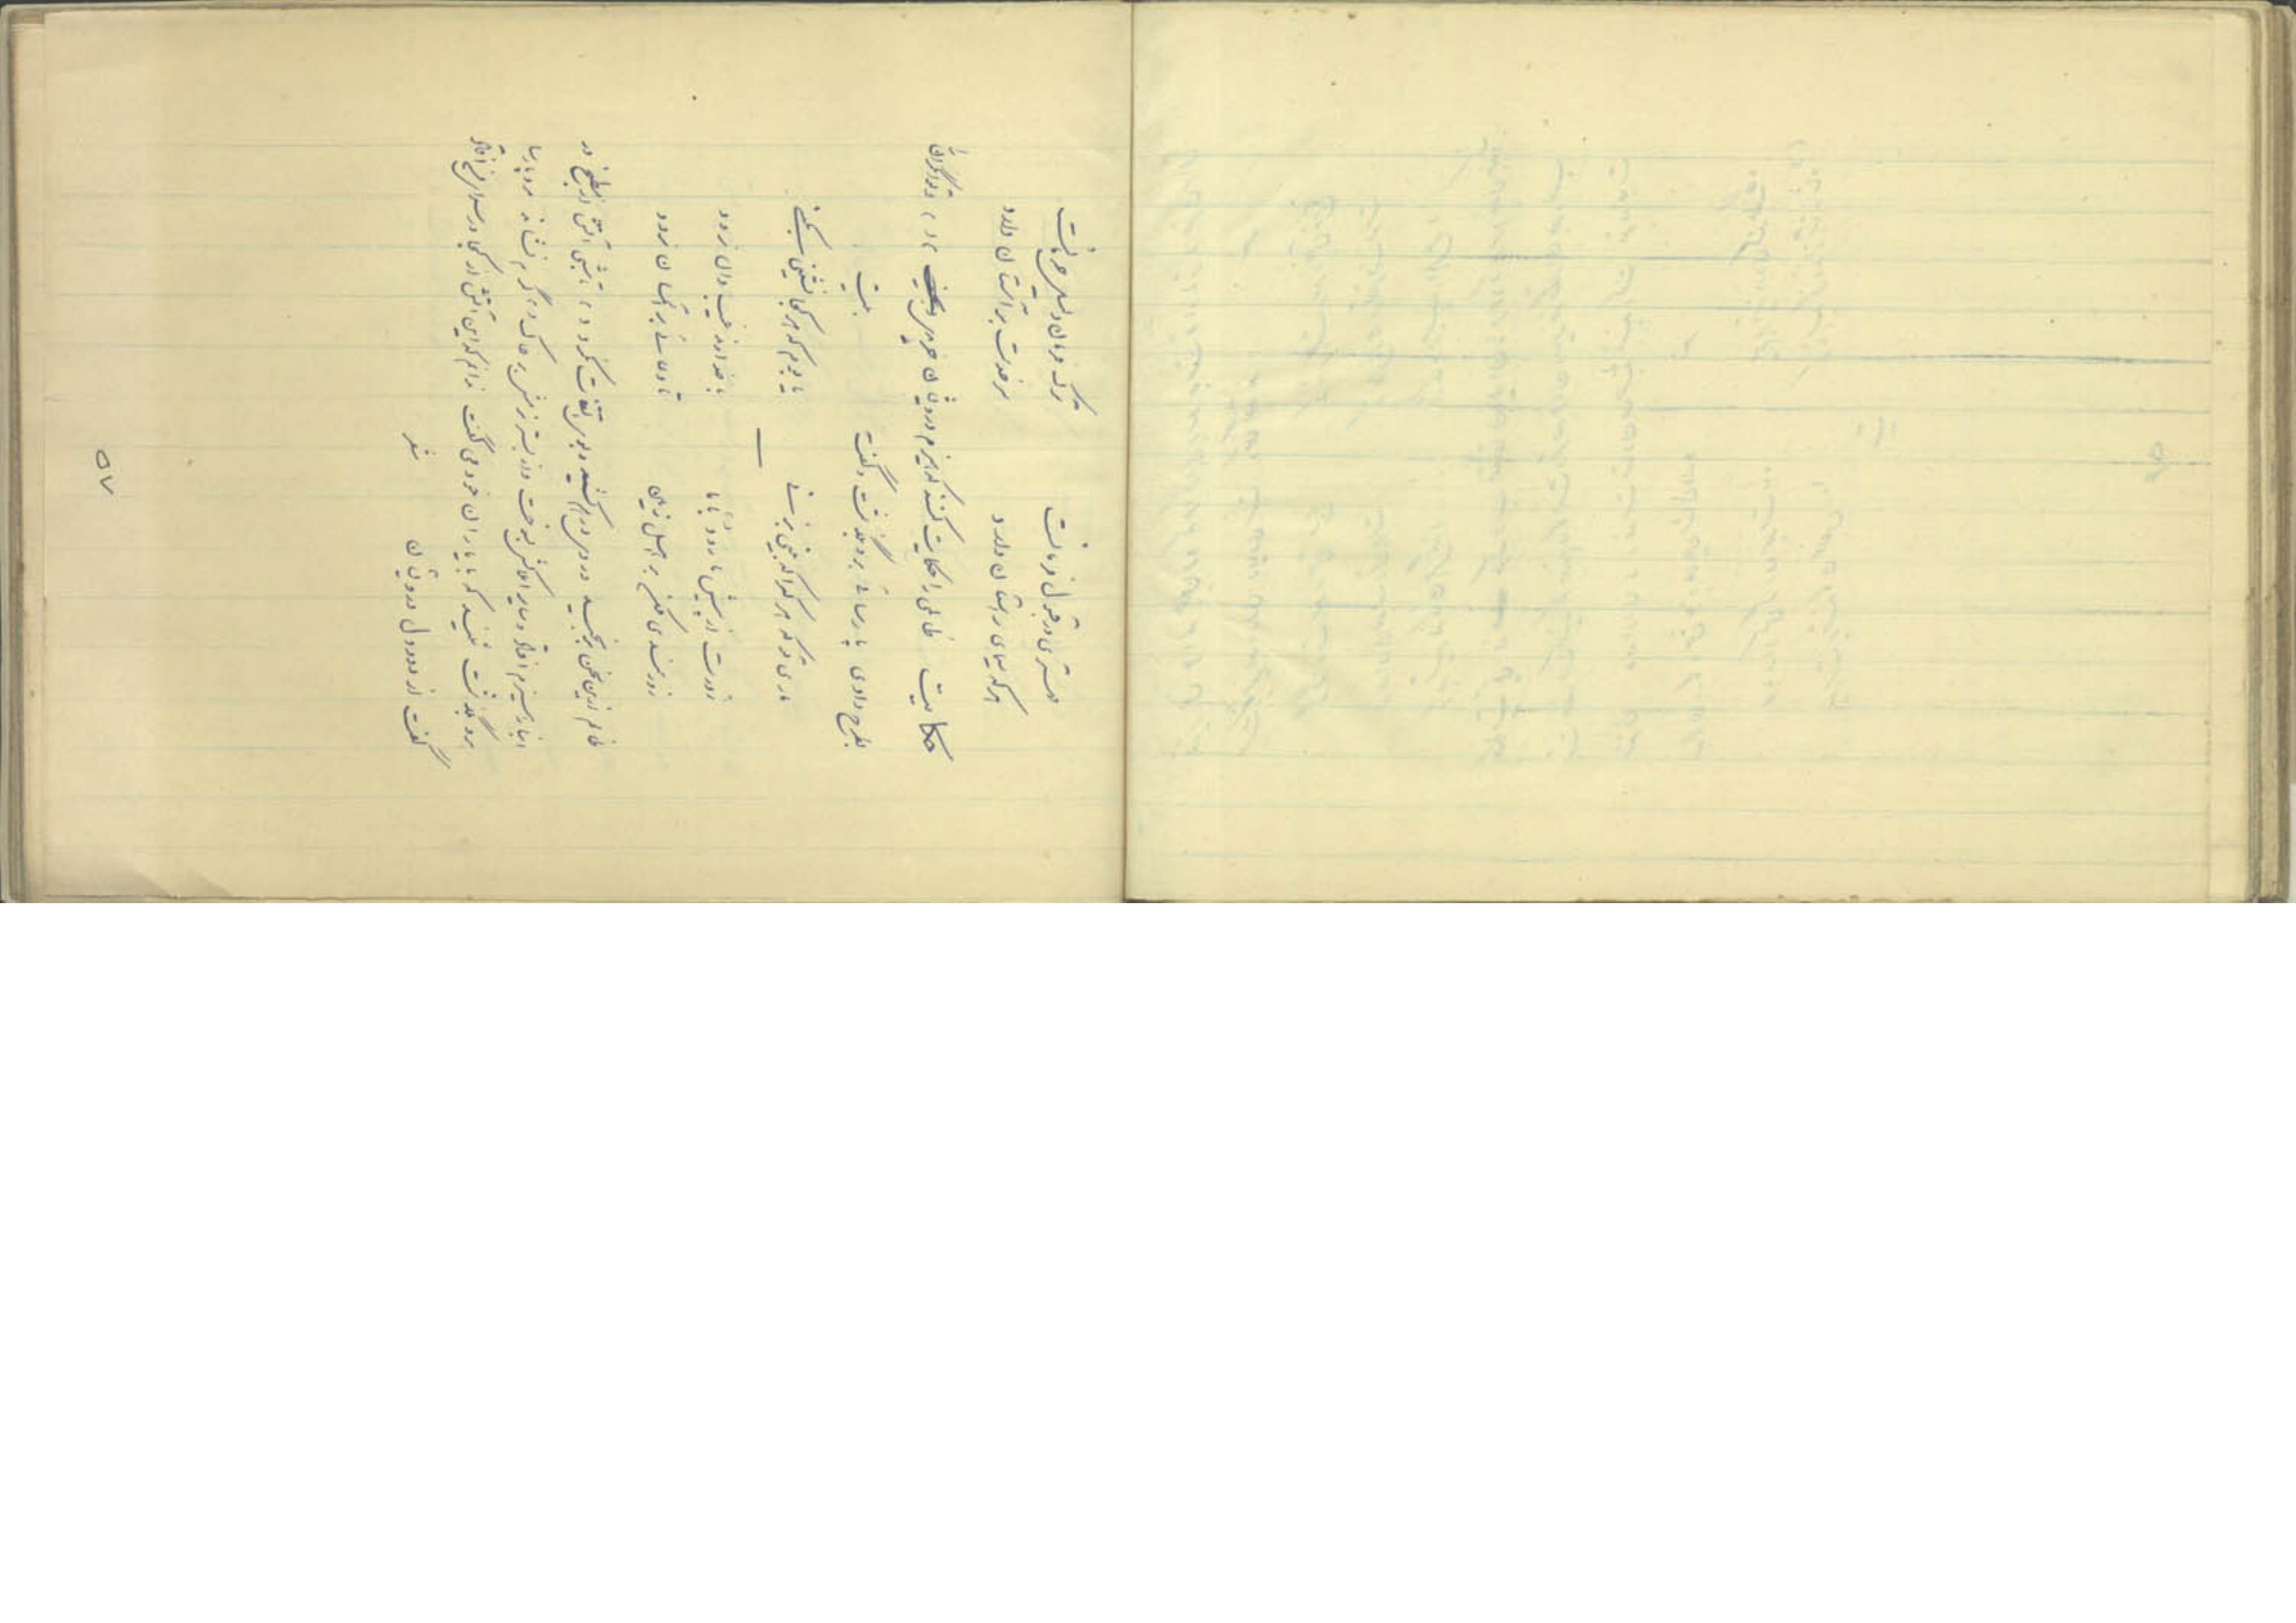 مهتری در قبول فرمانست ترک فرمان دلیل حرمانست
هر که سیمای راستان دارد سر خدمت بر آستان دارد
حکایت ظالمی را حکایت کنند که هیزم درویشان خریدی بحیف دادی توانگران را
بطرح دادی پارسائی برو بگذشت و گفت بیت
ماری تو که هر کرا که بینی بزنی یا بوم که هر کجا نشینی بکنی
زورت ار پیش میرود با ما با خداوند غیب دان نرود
زورمندی مکن بر اهل زمین تا دعائی بر آسمان نرود
ظالم ازین سخن برنجید و روی درهم کشید و بوی التفات نکرد تا شبی آتش از مطبخ در
انبار هیزم افتاد و سایر املاکش بسوخت و از بستر نرمش بر خاک گرم نشاند مرد پارسا
برو بگذشت شنید که با یاران خود می گفت ندانم که این آتش از کجا در سرای من افتاد
گفت از دود دل درویشان شعر
۵۷